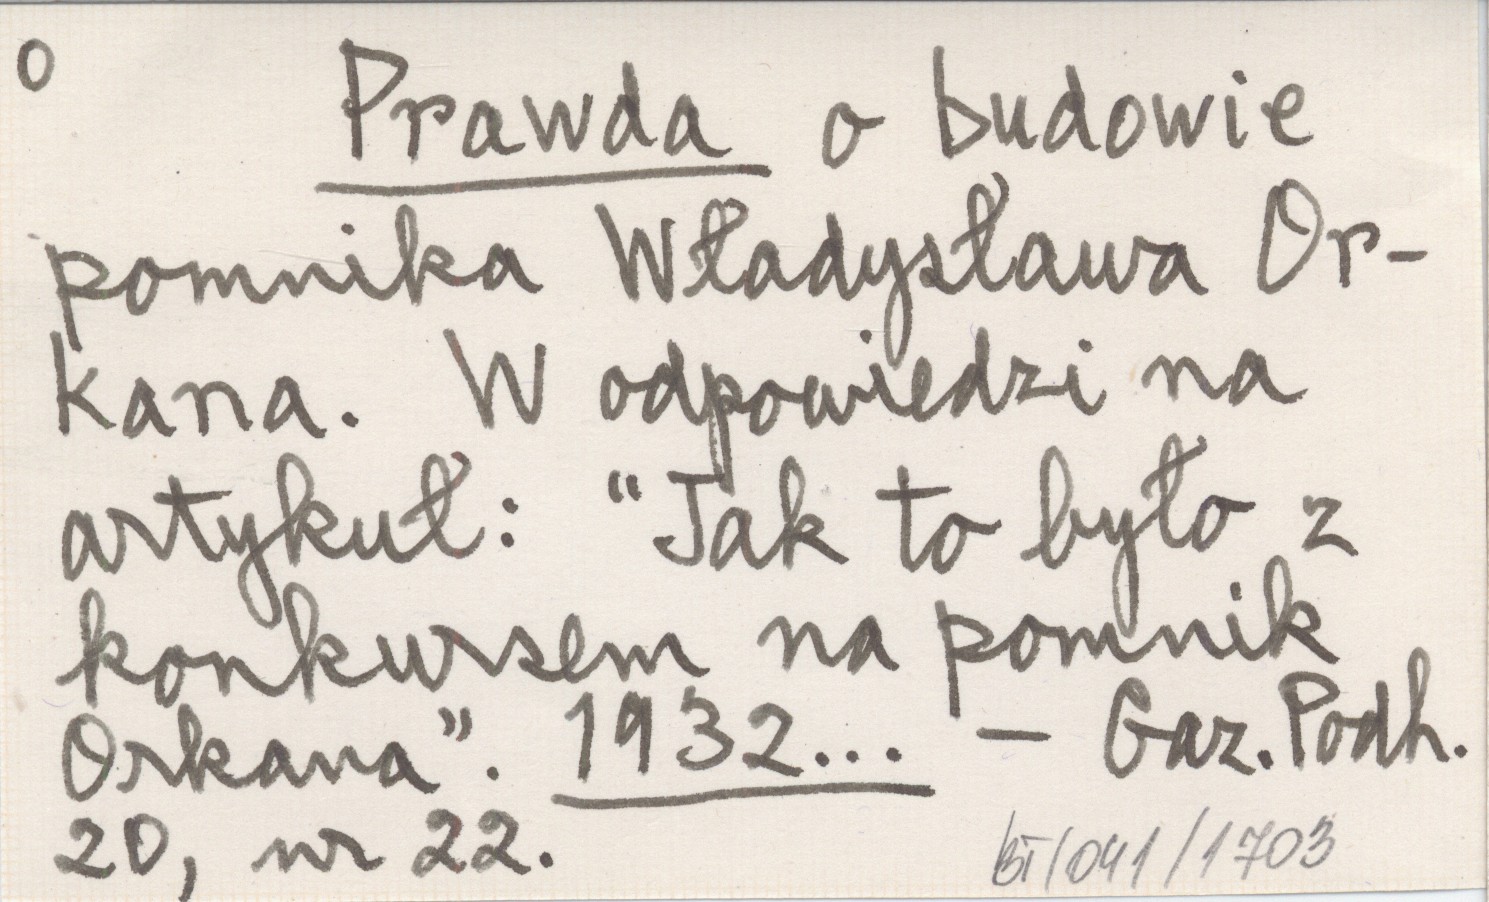 0
Prawda o budowie
pomnika Władysława Or-
kana. W odpowiedzi na
artykuł: "Jak to było z
konkursem na pomnik
Orkana". 1932... - Gaz. Podh.
20, nr 22.
BT/041/1703